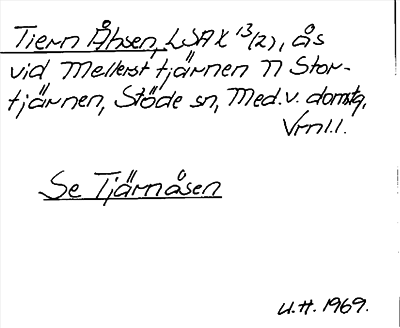 Tiern Åhsen, LSA X 13/2), ås
vid Mellerst tjärnen n Stor-
tjärnen, Stöde sn, Med. v. domsg,
Vrnl.l.
Se Tjärnåsen
U.H. 1969.